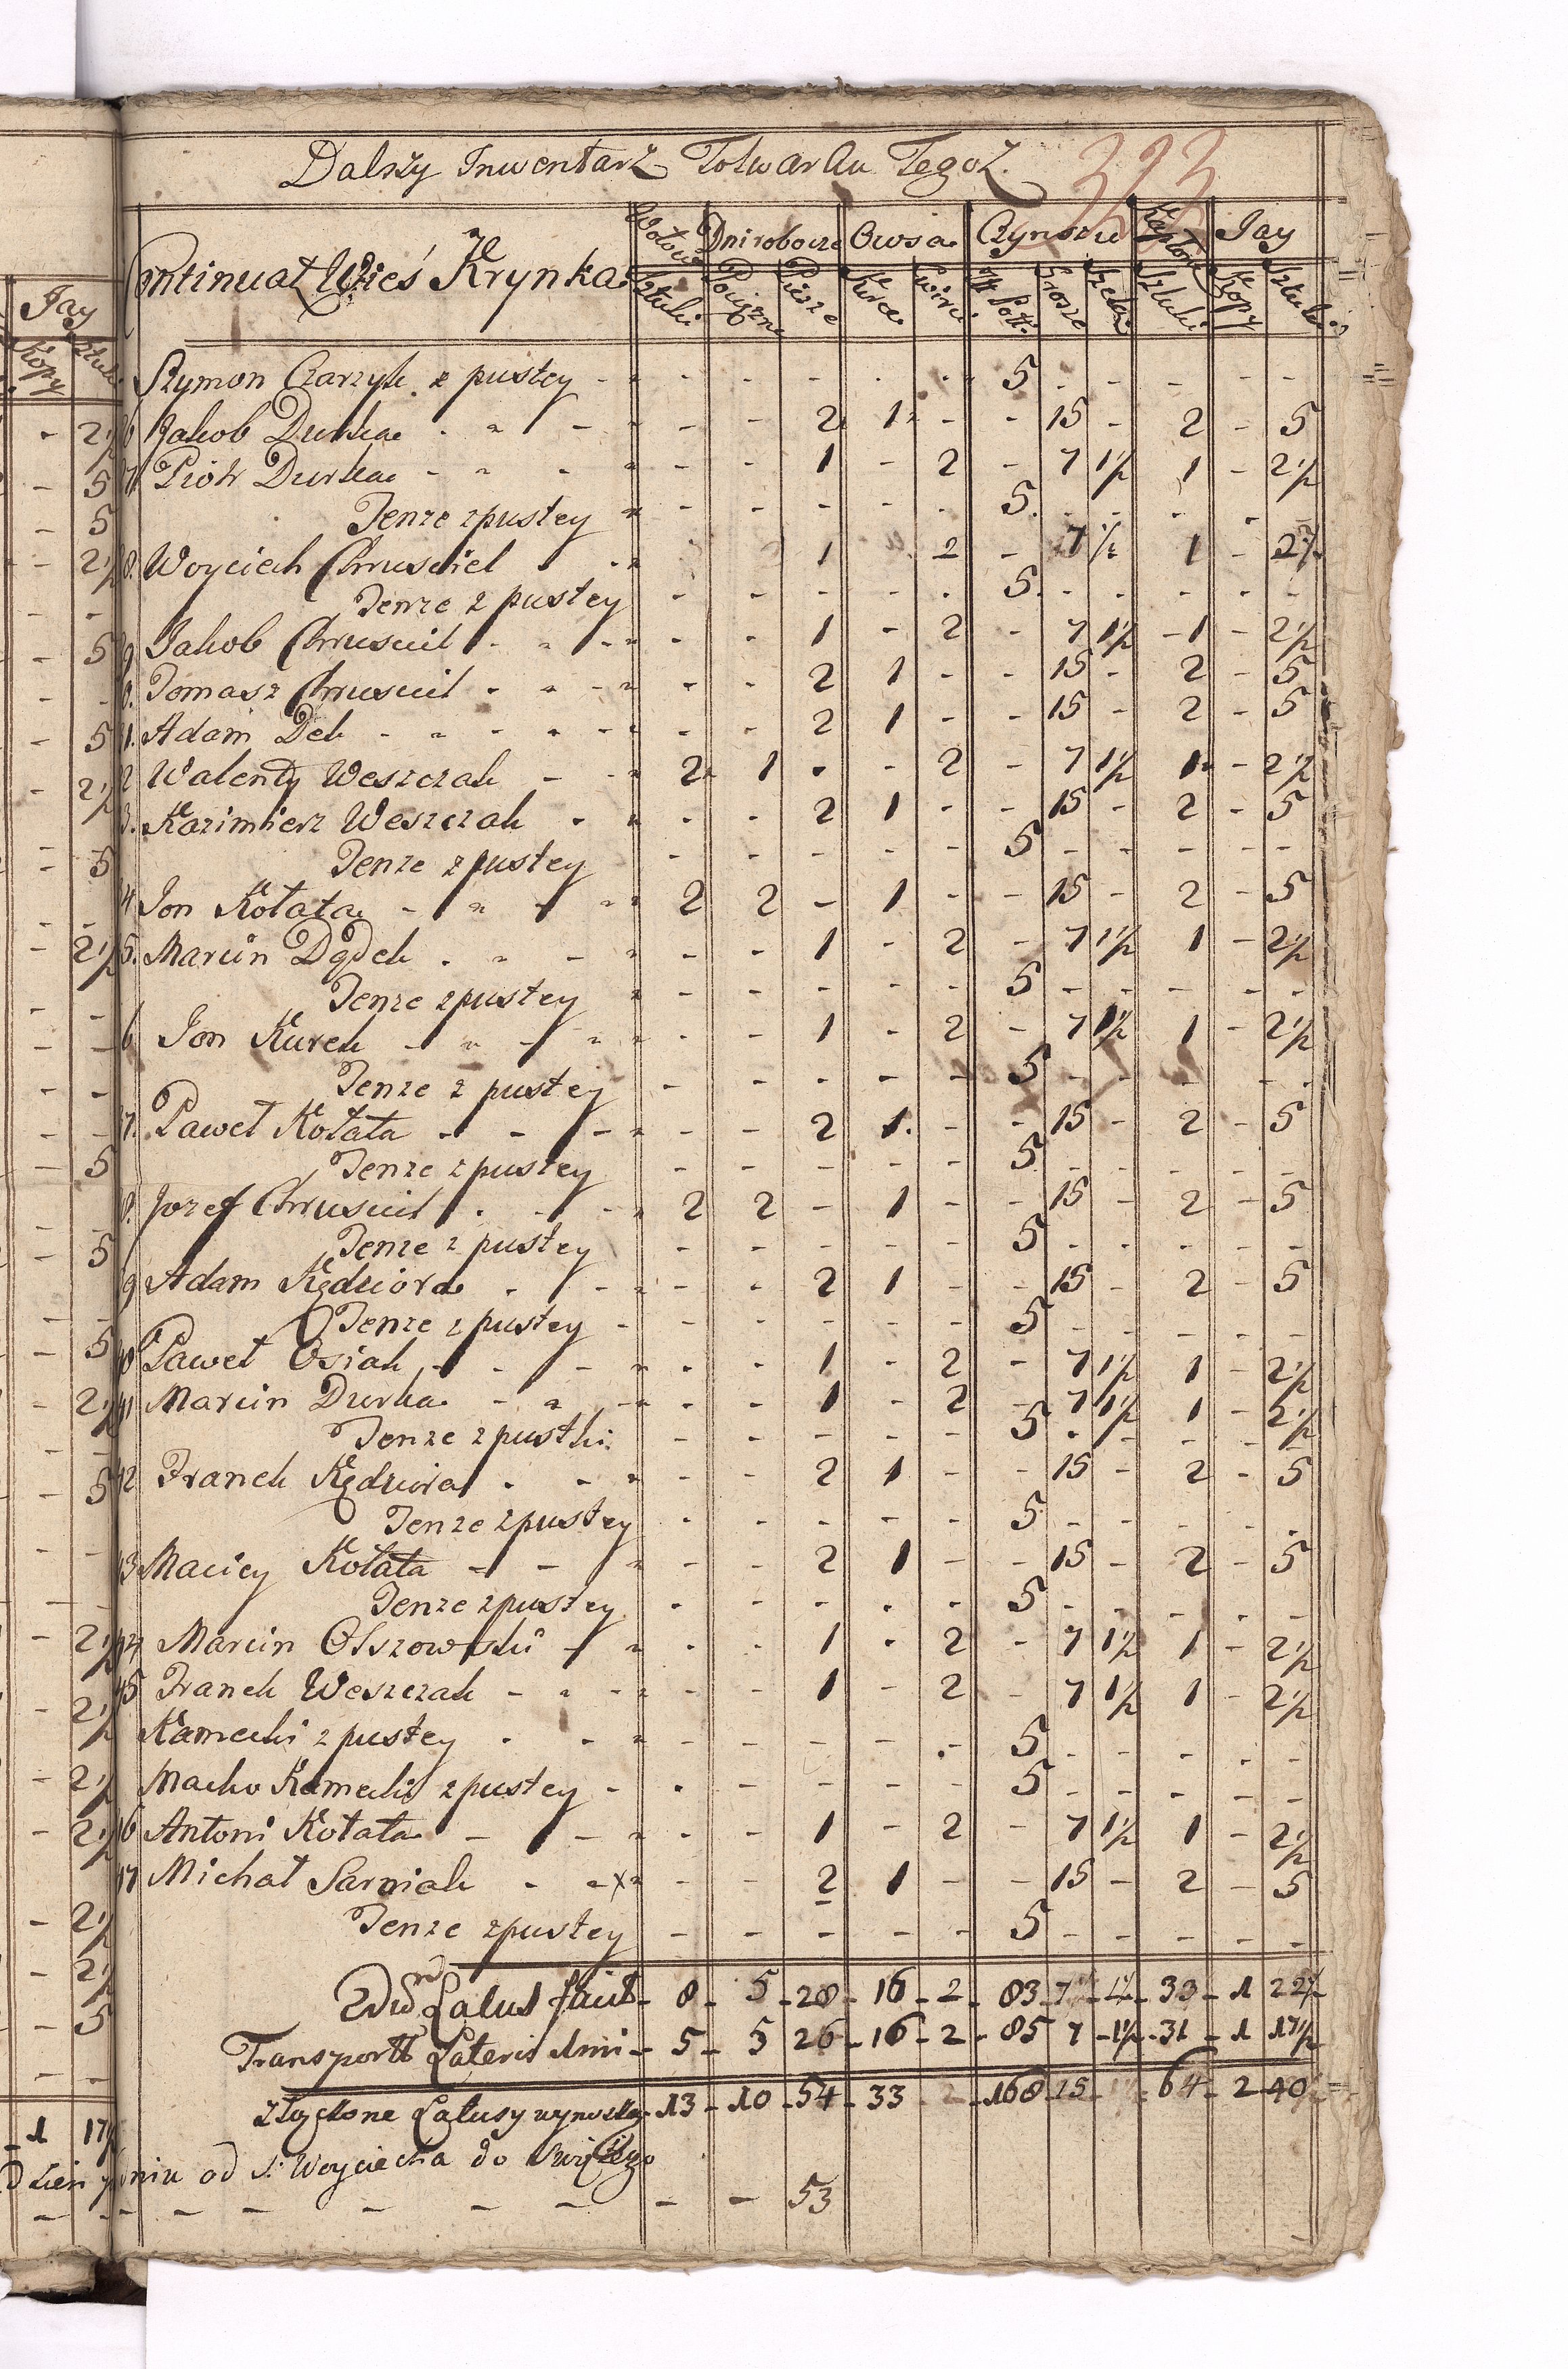 Dalszy Inwentarz Folwarku Tegoż. 393
Continuat Wieś Krynka. Wołow Dni robocze Owsa Czynszu Kapłony Jay
Sztuki Pociężne Piesze Korce Cwierci Zł Pols. Grosze Szelą: Sztuki Kopy Sztuki
Szymon Czarzyk z pustey - - - - - - 5 - - - - -
6 Jakob Durka - - - 2 1 - - 15 - 2 - 5
7 Piotr Durka - - - 1 - 2 - 7 1½ 1 - 2½
Tenze z pustey - - - - - 5 - - - - -
8. Woyciech Chrusciel 1 2 - 7 ½ 1 - 2½
Tenze z pustey - - - - - 5. - - - - -
9 Jakob Chrusciel - - 1 - 2 - 7 1½ - 1 - 2½
0. Tomasz Chrusciel - - 2 1 - - 15 - 2 - 5
1. Adam Dek - - 2 1 - - 15 - 2 - 5
2 Walenty Weszczak - 2 1 - - 2 - 7 1½ 1 - 2½
3. Kazimierz Weszczak - - 2 1 - - 15 - 2 - 5
Tenze z pustey - - - - - 5 - - - - -
4 Jon Kołata - 2 2 - 1 - - 15 - 2 - 5
5. Marcin Dądek - - 1 - 2 - 7 1½ 1 - 2½
Tenze z pustey - - - - - 5 - - - - -
6 Jon Kurek - - 1 - 2 - 7 1½ 1 - 2½
Tenze z pustey - - - - - 5 - - - - -
7. Paweł Kołata - - 2 1. - - 15 - 2 - 5
Tenze z pustey - - - - - 5 - - - - -
8. Jozef Chrusciel - 2 2 - 1 - - 15 - 2 - 5
Tenze z pustey - - - - - 5 - - - - -
9 Adam Kędziora - - 2 1 - - 15 - 2 - 5
Tenze z pustey - - - - - 5 - - - - -
40 Paweł Osiak - - 1 - 2 - 7 1½ 1 - 2½
41 Marcin Durka - - 1 - 2 - 7 1½ 1 - 2½
Tenze z pustki - - - - - 5 - - - - -
42 Franek Kędziora - - 2 1 - - 15 - 2 - 5
Tenze z pustey - - - - - 5 - - - - -
43 Maciey Kołata - - 2 1 - - 15 - 2 - 5
Tenze z pustey - - - - - 5 - - - - -
44 Marcin Olszowski - - 1 - 2 - 7 1½ 1 - 2½
45 Franek Weszczak - - 1 - 2 - 7 1½ 1 - 2½
Kamecki z pustey - - - - - 5 - - - - -
Macko Kamecki z pustey - - - - - 5 - - - - -
46 Antoni Kołata - - 1 - 2 - 7 1½ 1 - 2½
47 Michał Sarniak - x - - 2 1 - - 15 - 2 - 5
Tenze z pustey - - - - - 5 - - - - -
Latus facit - 8 - 5 - 28 - 16 - 2 - 83 7½ 1½ - 33 - 1 22½
Transportt Lateris 1mi - 5 - 5 26 - 16 - 2 - 85 7 - 1½ - 31 - 1 17½
złączone Latusy wynoszą - 13 - 10 - 54 - 33 - 2 - 168 15 - 64 - 2 - 40
Dzień od S: Woyciecha do
- - - - - - 53
Jay
Kopy Sztuki
- 2½
- 5
- 5
- 2½
- -
- 5
- -
- 5
- 2½
- 5
- -
- 2½
- -
- -
- -
- -
- 5
- -
- 5
- -
- 5
- 2½
- -
- 5
- -
- -
- 2½
- 2½
- 2½
- 2½
- 2½
- 2½
- 5
- -
- 1 17½